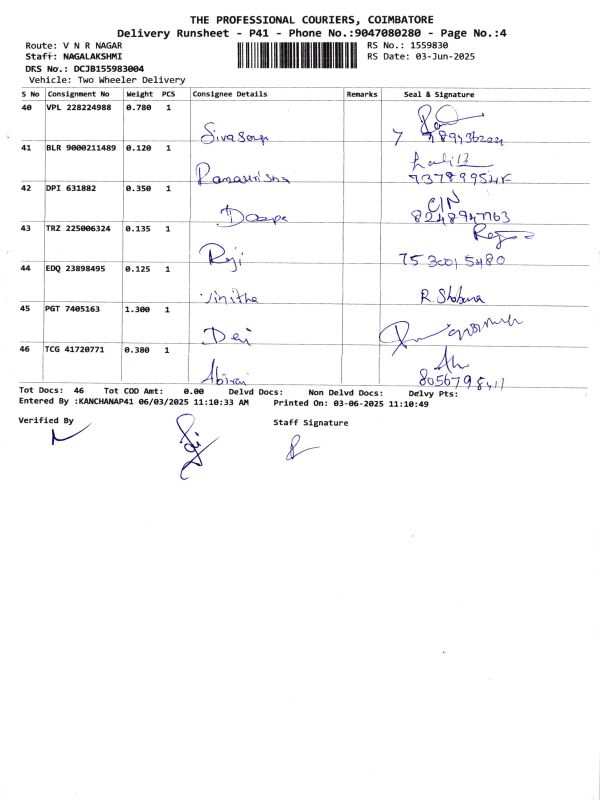 THE PROFESSIONAL COURIERS, COIMBATORE
Delivery Runsheet - P41 - Phone No.:9047080280 - Page No.:4
Route: V N R NAGAR RS No.: 1559830
Staff: NAGALAKSHMI RS Date: 03-Jun-2025
DRS No.: DCJB155983004
Vehicle: Two Wheeler Delivery
S No Consignment No Weight PCS Consignee Details Remarks Seal & Signature
40 VPL 228224988 0.780 1
41 BLR 9000211489 0.120 1
42 DPI 631882 0.350 1
C/N
8248947763
43 TRZ 225006324 0.135 1
Reji 7530015480
44 EDQ 23898495 0.125 1
Vinitha R. Shobana
45 PGT 7405163 1.300 1
46 TCG 41720771 0.380 1
Abirai 8056798411
Tot Docs: 46 Tot COD Amt: 0.00 Delvd Docs: Non Delvd Docs: Delvy Pts:
Entered By :KANCHANAP41 06/03/2025 11:10:33 AM Printed On: 03-06-2025 11:10:49
Verified By Staff Signature